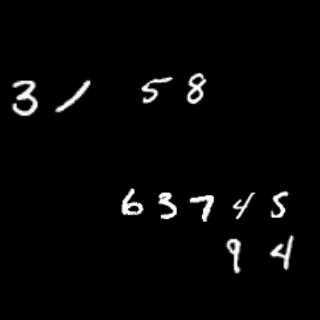 31 58
63745
94